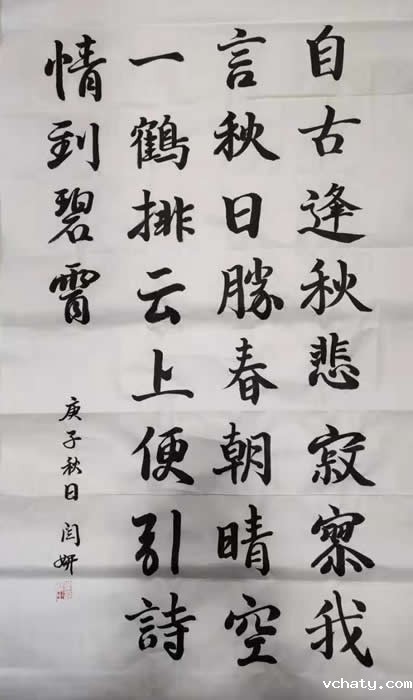 自古逢秋悲寂寥我
言秋日勝春朝晴空
一鶴排云上便引詩
情到碧霄
庚子秋日 闫妍
vchaty.com